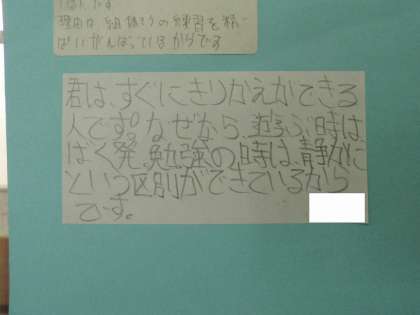 理由は組体そうの練習を精い
ぱいがんばっているからです
君は、すぐにきりかえができる
人です。なぜなら、遊ぶ時は、
ばく発、勉強の時は、静かに
という区別ができているから
です。